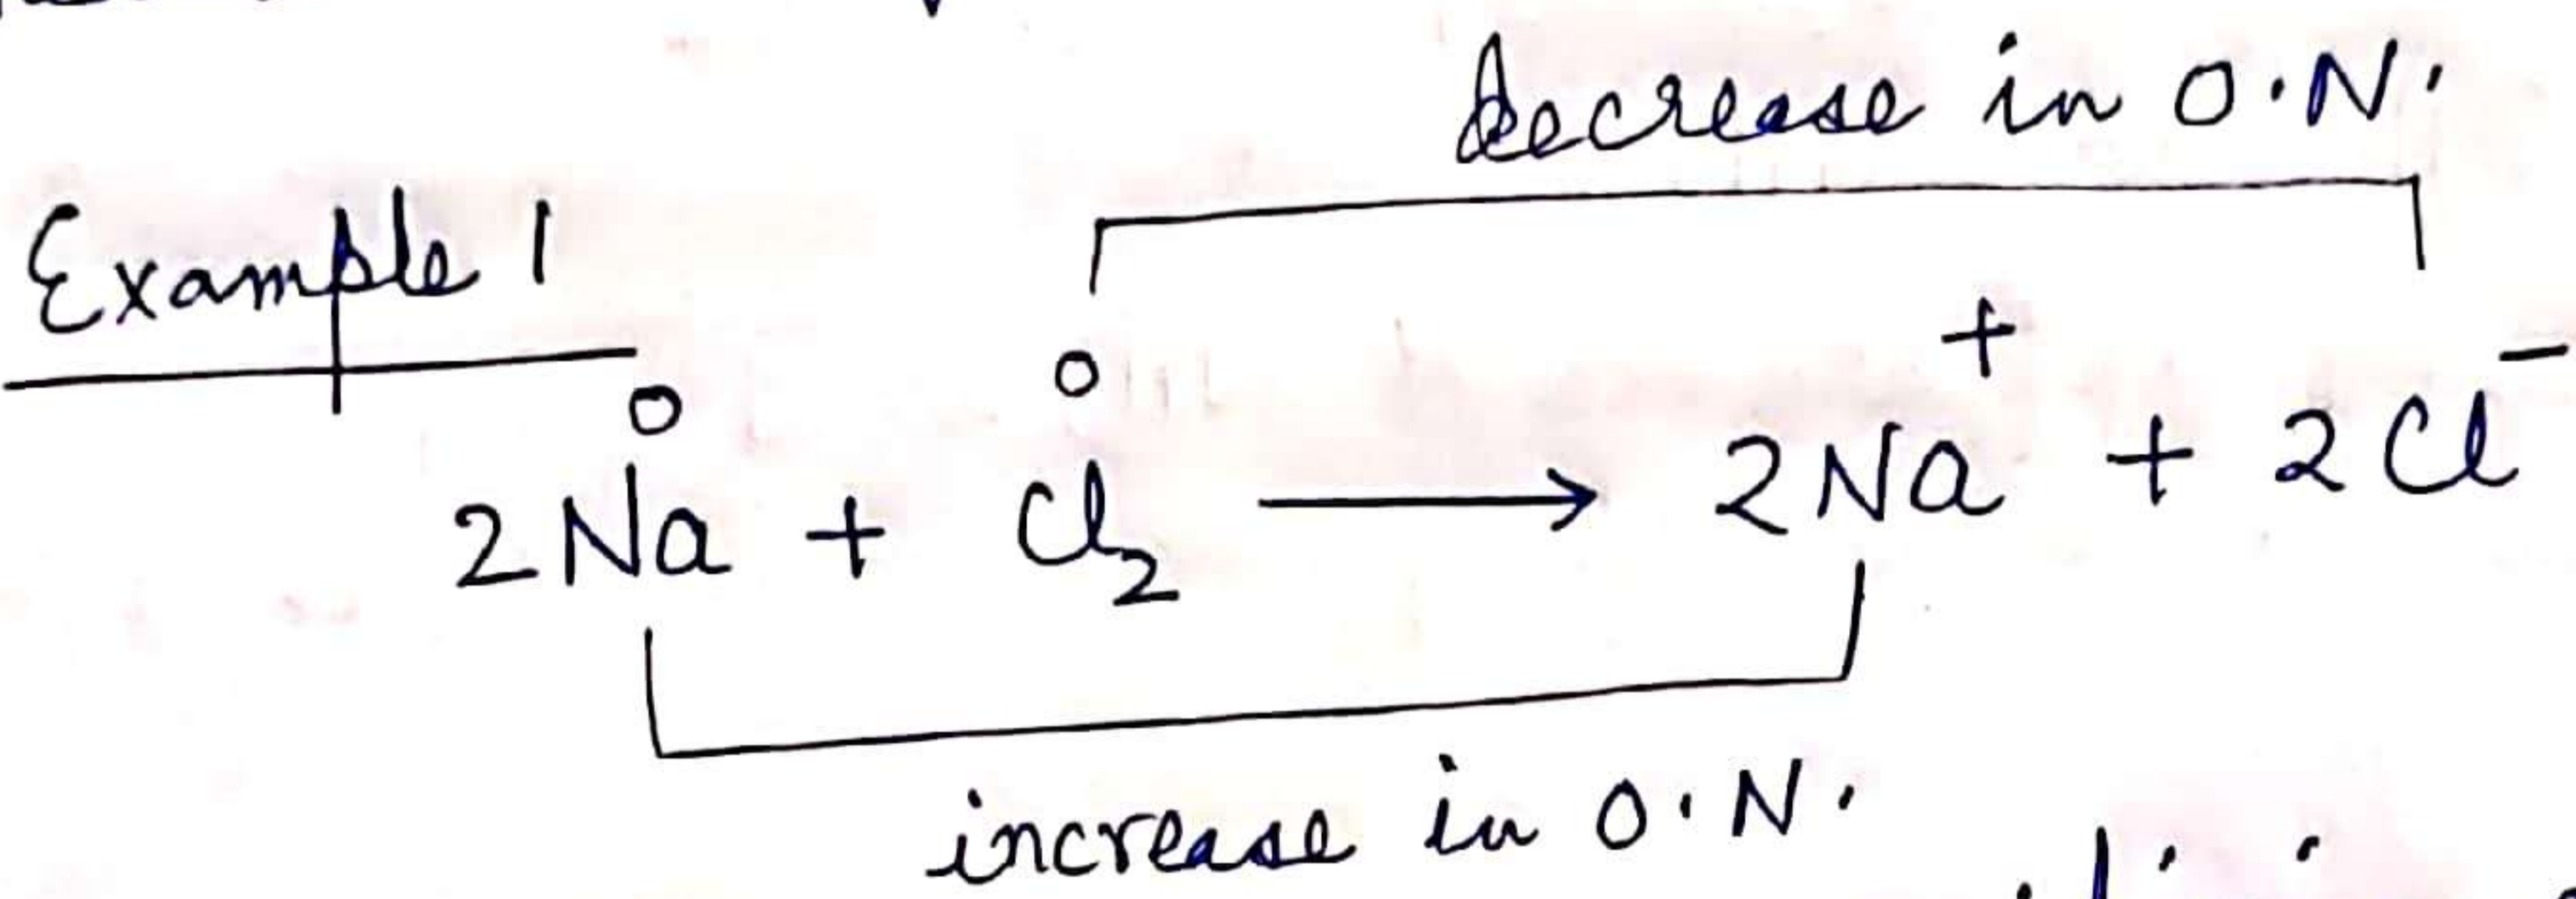 decrease in O.N.
Example 1
0 0 + -
2Na + Cl2 → 2Na + 2Cl
increase in O.N.